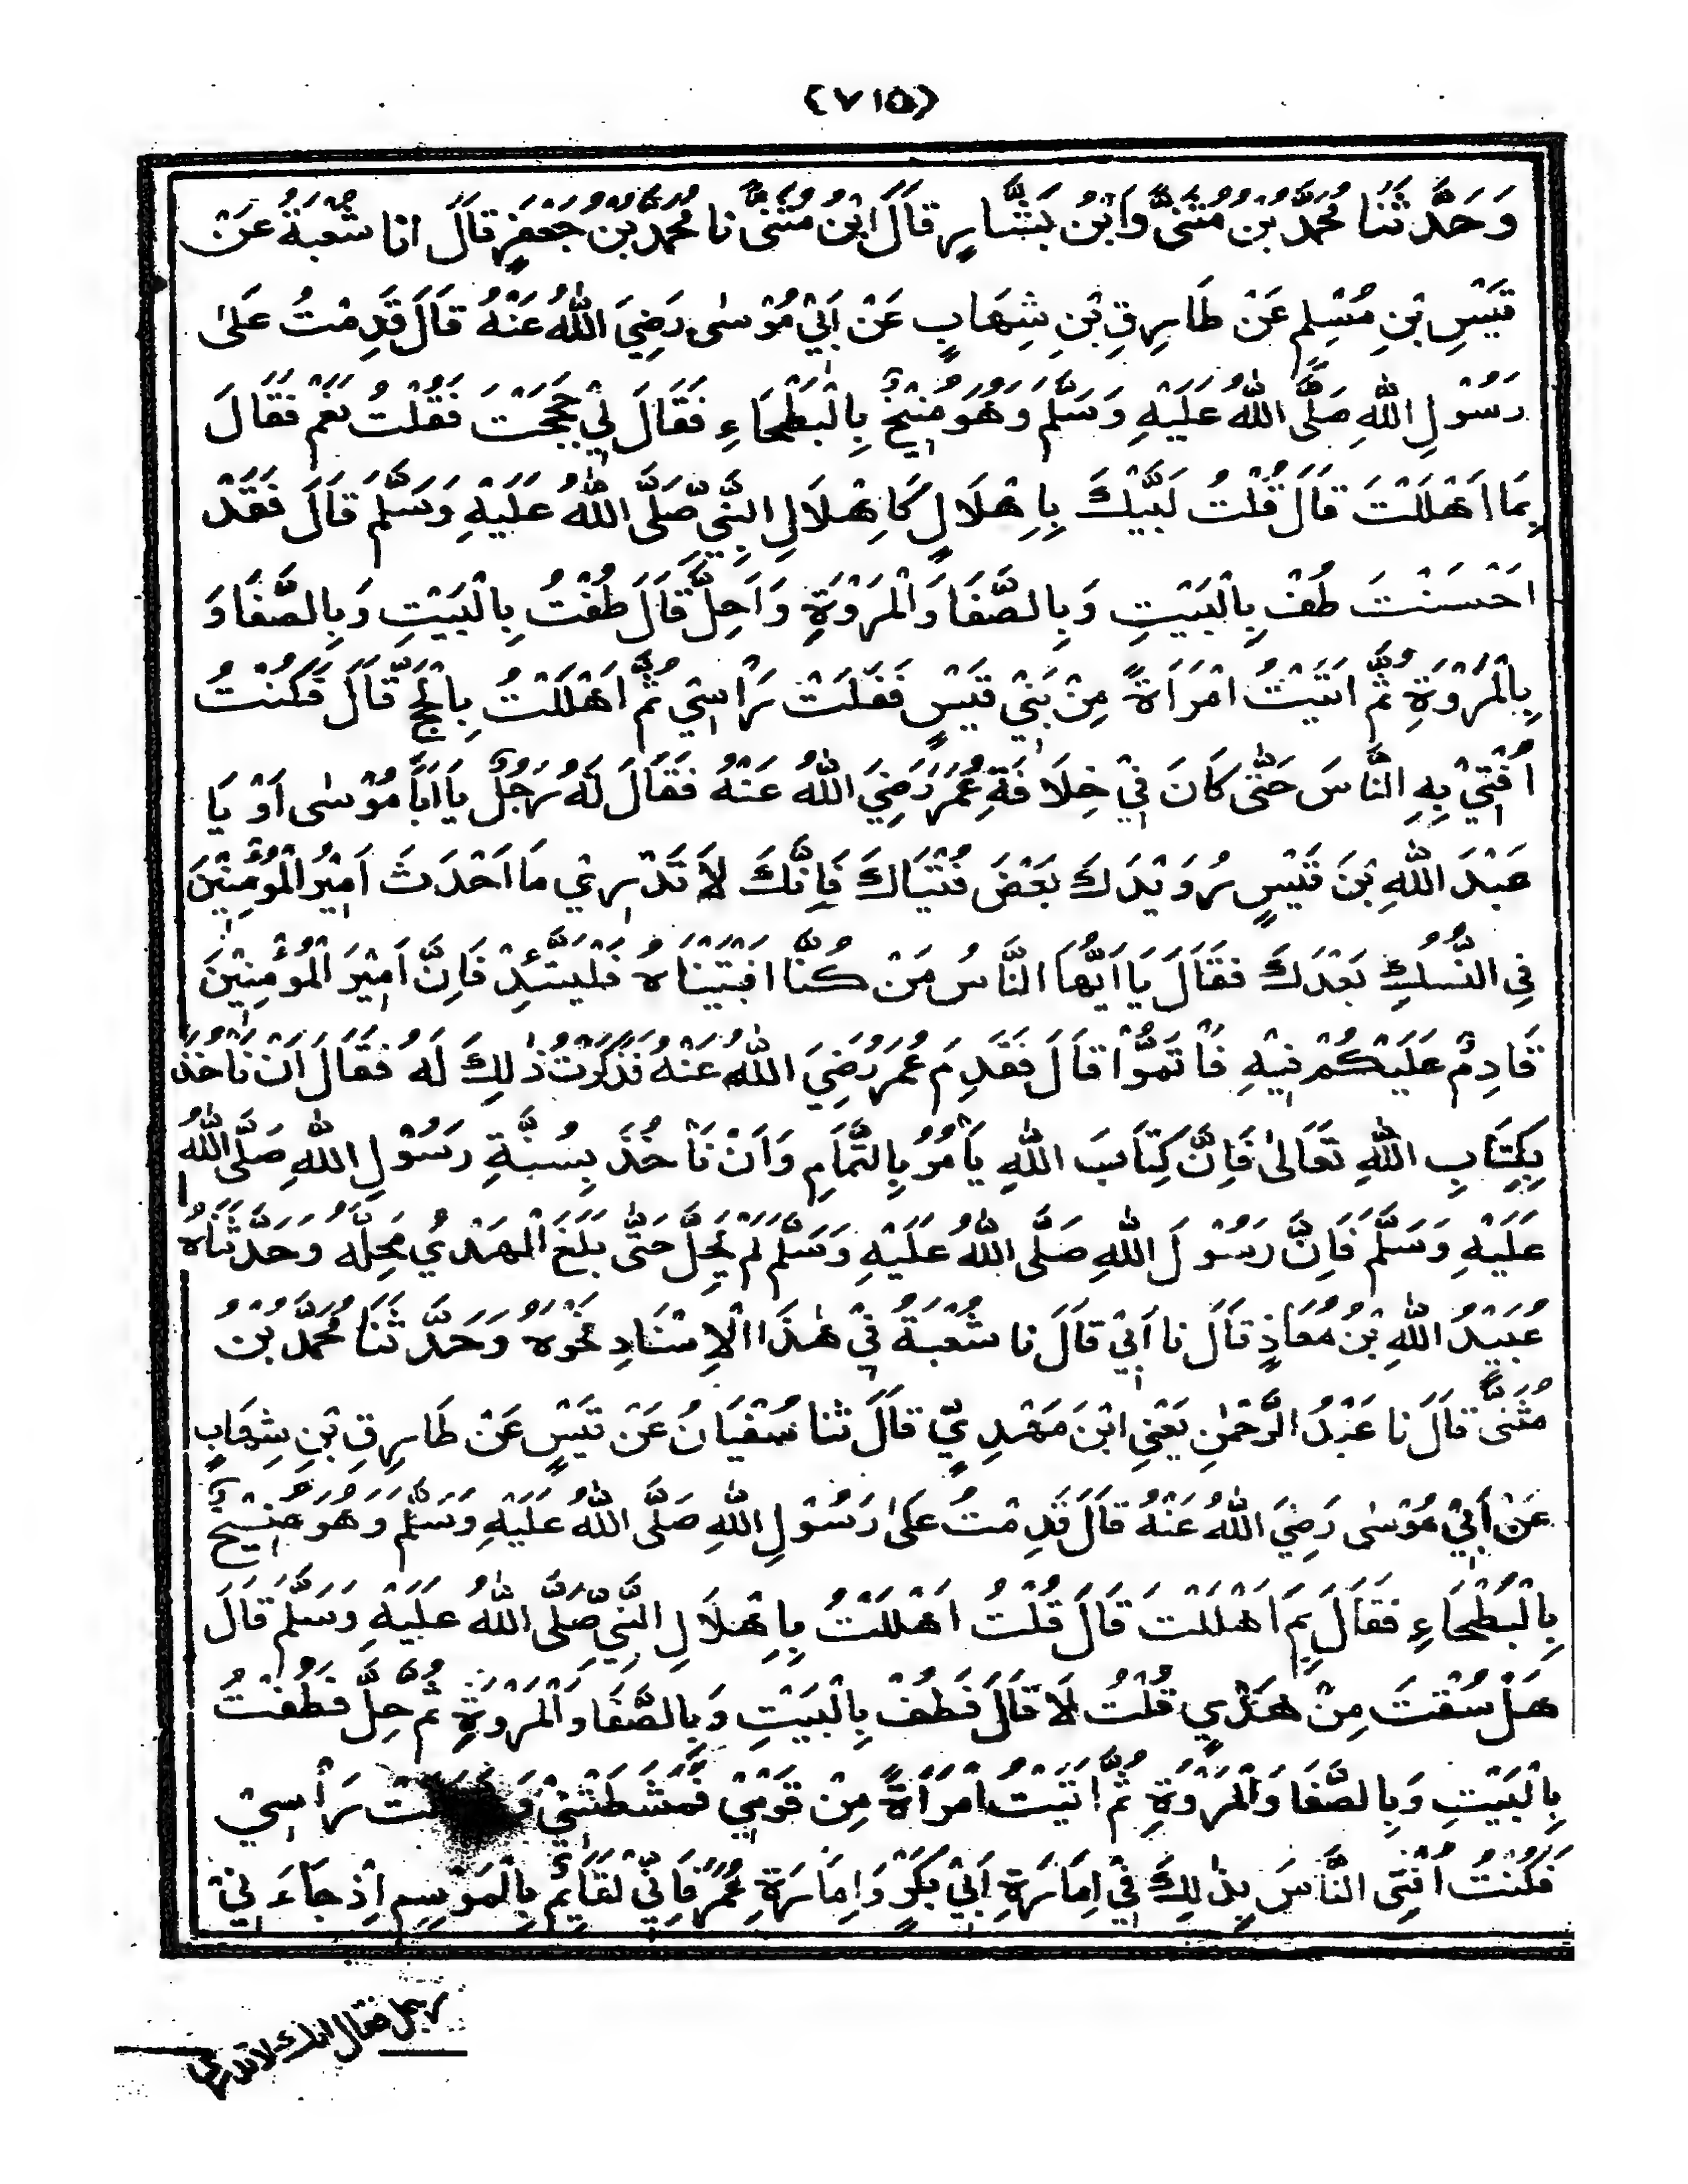 ﴿٧١٥﴾
وَحَدَّثَنَا مُحَمَّدُ بْنُ مُثَنَّى وَابْنُ بَشَّارٍ قَالَ ابْنُ مُثَنَّى نا مُحَمَّدُ بْنُ جَعْفَرٍ قَالَ انا شُعْبَةُ عَنْ
قَيْسِ بْنِ مُسْلِمٍ عَنْ طَارِقِ بْنِ شِهَابٍ عَنْ اَبِيْ مُوْسٰى رَضِيَ اللّٰهُ عَنْهُ قَالَ قَدِمْتُ عَلٰى
رَسُوْلِ اللّٰهِ صَلَّى اللّٰهُ عَلَيْهِ وَسَلَّمَ وَهُوَ مُنِيْخٌ بِالْبَطْحَاءِ فَقَالَ لِيْ حَجَجْتَ فَقُلْتُ نَعَمْ فَقَالَ
بِمَا اَهْلَلْتَ قَالَ قُلْتُ لَبَّيْكَ بِاِهْلَالٍ كَاِهْلَالِ النَّبِيِّ صَلَّى اللّٰهُ عَلَيْهِ وَسَلَّمَ قَالَ فَقَدْ
اَحْسَنْتَ طُفْ بِالْبَيْتِ وَبِالصَّفَا وَالْمَرْوَةِ وَاَحِلَّ قَالَ طُفْتُ بِالْبَيْتِ وَبِالصَّفَا وَ
بِالْمَرْوَةِ ثُمَّ اَتَيْتُ امْرَاَةً مِنْ بَنِيْ قَيْسٍ فَفَلَتْ رَاْسِيْ ثُمَّ اَهْلَلْتُ بِالْحَجِّ قَالَ فَكُنْتُ
اُفْتِيْ بِهِ النَّاسَ حَتّٰى كَانَ فِيْ خِلَافَةِ عُمَرَ رَضِيَ اللّٰهُ عَنْهُ فَقَالَ لَهُ رَجُلٌ يَا اَبَا مُوْسٰى اَوْ يَا
عَبْدَ اللّٰهِ بْنَ قَيْسٍ رُوَيْدَكَ بَعْضَ فُتْيَاكَ فَاِنَّكَ لَا تَدْرِيْ مَا اَحْدَثَ اَمِيْرُ الْمُؤْمِنِيْنَ
فِي النُّسُكِ بَعْدَكَ فَقَالَ يَا اَيُّهَا النَّاسُ مَنْ كُنَّا افْتَيْنَاهُ فَلْيَتَّئِدْ فَاِنَّ اَمِيْرَ الْمُؤْمِنِيْنَ
قَادِمٌ عَلَيْكُمْ فَبِهِ فَاْتَمُّوْا قَالَ فَقَدِمَ عُمَرُ رَضِيَ اللّٰهُ عَنْهُ فَذَكَرْتُ ذٰلِكَ لَهُ فَقَالَ اَنْ نَاْخُذَ
بِكِتَابِ اللّٰهِ تَعَالٰى فَاِنَّ كِتَابَ اللّٰهِ يَاْمُرُ بِالتَّمَامِ وَاَنْ نَاْخُذَ بِسُنَّةِ رَسُوْلِ اللّٰهِ صَلَّى اللّٰهُ
عَلَيْهِ وَسَلَّمَ فَاِنَّ رَسُوْلَ اللّٰهِ صَلَّى اللّٰهُ عَلَيْهِ وَسَلَّمَ لَمْ يَحِلَّ حَتّٰى بَلَغَ الْهَدْيُ مَحِلَّهُ وَحَدَّثَنَاهُ
عُبَيْدُ اللّٰهِ بْنُ مُعَاذٍ قَالَ نا اَبِيْ قَالَ نا شُعْبَةُ فِيْ هٰذَا الْاِسْنَادِ نَحْوَهُ وَحَدَّثَنَا مُحَمَّدُ بْنُ
مُثَنَّى قَالَ نا عَبْدُ الرَّحْمٰنِ يَعْنِي ابْنَ مَهْدِيٍّ قَالَ ثنا سُفْيَانُ عَنْ قَيْسٍ عَنْ طَارِقِ بْنِ شِهَابٍ
عَنْ اَبِيْ مُوْسٰى رَضِيَ اللّٰهُ عَنْهُ قَالَ قَدِمْتُ عَلٰى رَسُوْلِ اللّٰهِ صَلَّى اللّٰهُ عَلَيْهِ وَسَلَّمَ وَهُوَ مُنِيْخٌ
بِالْبَطْحَاءِ فَقَالَ بِمَ اَهْلَلْتَ قَالَ قُلْتُ اَهْلَلْتُ بِاِهْلَالِ النَّبِيِّ صَلَّى اللّٰهُ عَلَيْهِ وَسَلَّمَ قَالَ
هَلْ سُقْتَ مِنْ هَدْيٍ قُلْتُ لَا قَالَ فَطُفْ بِالْبَيْتِ وَبِالصَّفَا وَالْمَرْوَةِ ثُمَّ حِلَّ فَطُفْتُ
بِالْبَيْتِ وَبِالصَّفَا وَالْمَرْوَةِ ثُمَّ اَتَيْتُ امْرَاَةً مِنْ قَوْمِيْ فَمَشَطَتْنِيْ رَاْسِيْ
فَكُنْتُ اُفْتِي النَّاسَ بِذٰلِكَ فِيْ اِمَارَةِ اَبِيْ بَكْرٍ وَاِمَارَةِ عُمَرَ فَاِنِّيْ لَقَائِمٌ بِالْمَوْسِمِ اِذْ جَاءَنِيْ
رجل فقال انك لا تدري